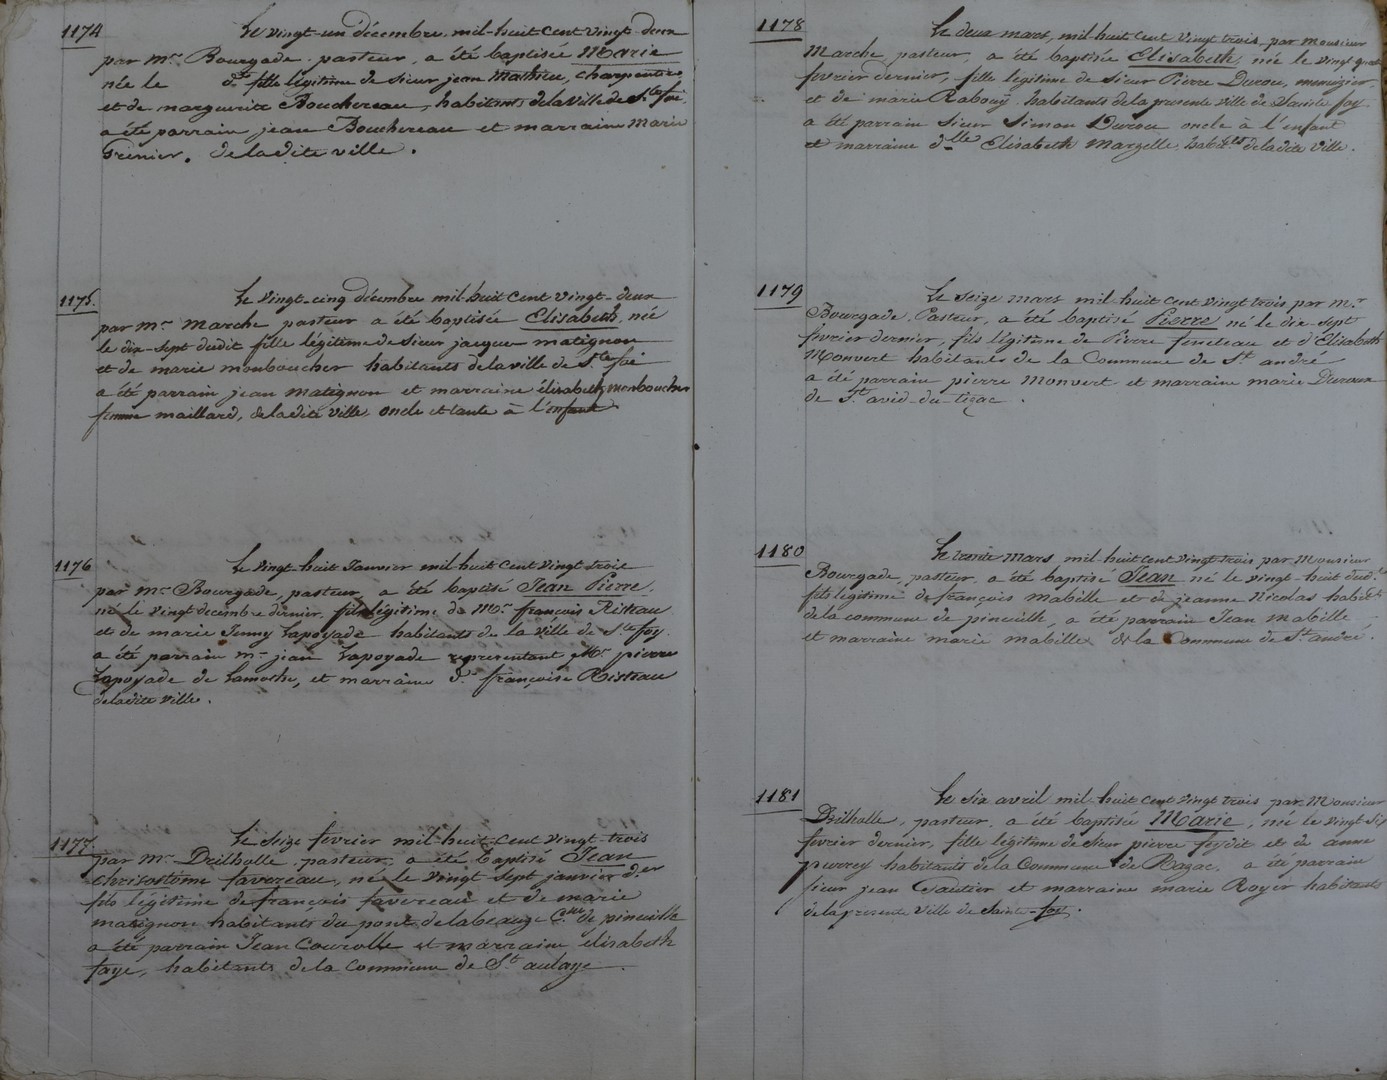 1174
Le vingt-un décembre mil-huit cent vingt-deux
par mr. Bourgade, pasteur, a été baptisée Marie
née le dt. fille légitime de sieur jean Mathieu, charpentier
et de marguerite Bouchereau, habitants de la ville de Ste foi,
a été parrain jean Bouchereau et marraine Marie
Grenier, de la dite ville.
1175.
Le vingt-cinq décembre mil-huit cent vingt-deux
par mr marche pasteur a été baptisée Elisabeth, née
le dix-sept dudit fille légitime de sieur jacques matignon
et de marie monboucher habitants de la ville de Ste foi
a été parrain jean matignon et marraine élisabeth monboucher
femme maillard, de la dite ville, oncle et tante à l'enfant
1176
Le vingt huit Janvier mil-huit cent vingt-trois
par mr Bourgade, pasteur, a été baptisé Jean Pierre,
né le vingt decembre dernier, fils légitime de Mr françois Risteau
et de marie Jenny Lapoyade habitants de la ville de Ste foy.
a été parrain mr jean Lapoyade représentant Mr pierre
Lapoyade de Lamothe, et marraine d. françoise Risteau
de la dite ville.
1177.
Le seize fevrier mil-huit-cent vingt-trois
par mr Drilholle, pasteur, a été baptisé Jean
chrisostome favereau, né le vingt sept janvier der
fils légitime de françois favereau et de marie
matignon habitants du pont de la beauze Cne de pineuilh
a été parrain Jean Courolle et marraine élisabeth
faye, habitants de la commune de St aulaye.
1178
Le deux mars, mil-huit cent vingt trois par monsieur
Marche pasteur, a été baptisée Elisabeth, née le vingt quat
fevrier dernier, fille légitime de Sieur Pierre Durou, menuisier
et de marie Rabouÿ habitants de la presente ville de Sainte foy.
a été parrain Sieur Simon Durou oncle à l'enfant
et marraine dlle Elisabeth Margelle, habits de la dite ville.
1179
Le Seize mars mil-huit cent vingt trois par mr
Bourgade, Pasteur, a été baptisé Pierre, né le dix-sept
fevrier dernier, fils légitime de Pierre feneteau et d'Elisabeth
Monvert habitants de la Commune de St andré
a été parrain pierre Monvert et marraine marie Duroux
de St avid-du-tizac.
1180
Le trente Mars mil-huit cent vingt trois par Monsieur
Bourgade, pasteur, a été baptisé Jean né le vingt-huit dud.
fils légitime de françois Mabille et de jeanne Nicolas habits
de la commune de pineuilh, a été parrain Jean mabille
et marraine marie mabille de la Commune de St andré.
1181
Le Six avril mil-huit cent vingt trois par Monsieur
Drilholle, pasteur, a été baptisée Marie, née le vingt-six
fevrier dernier, fille légitime de sieur pierre feydit et de anne
pierrey habitants de la Commune de Razac, a été parrain
sieur jean Gautier et marraine marie Royer habitants
de la presente ville de Sainte-foy.